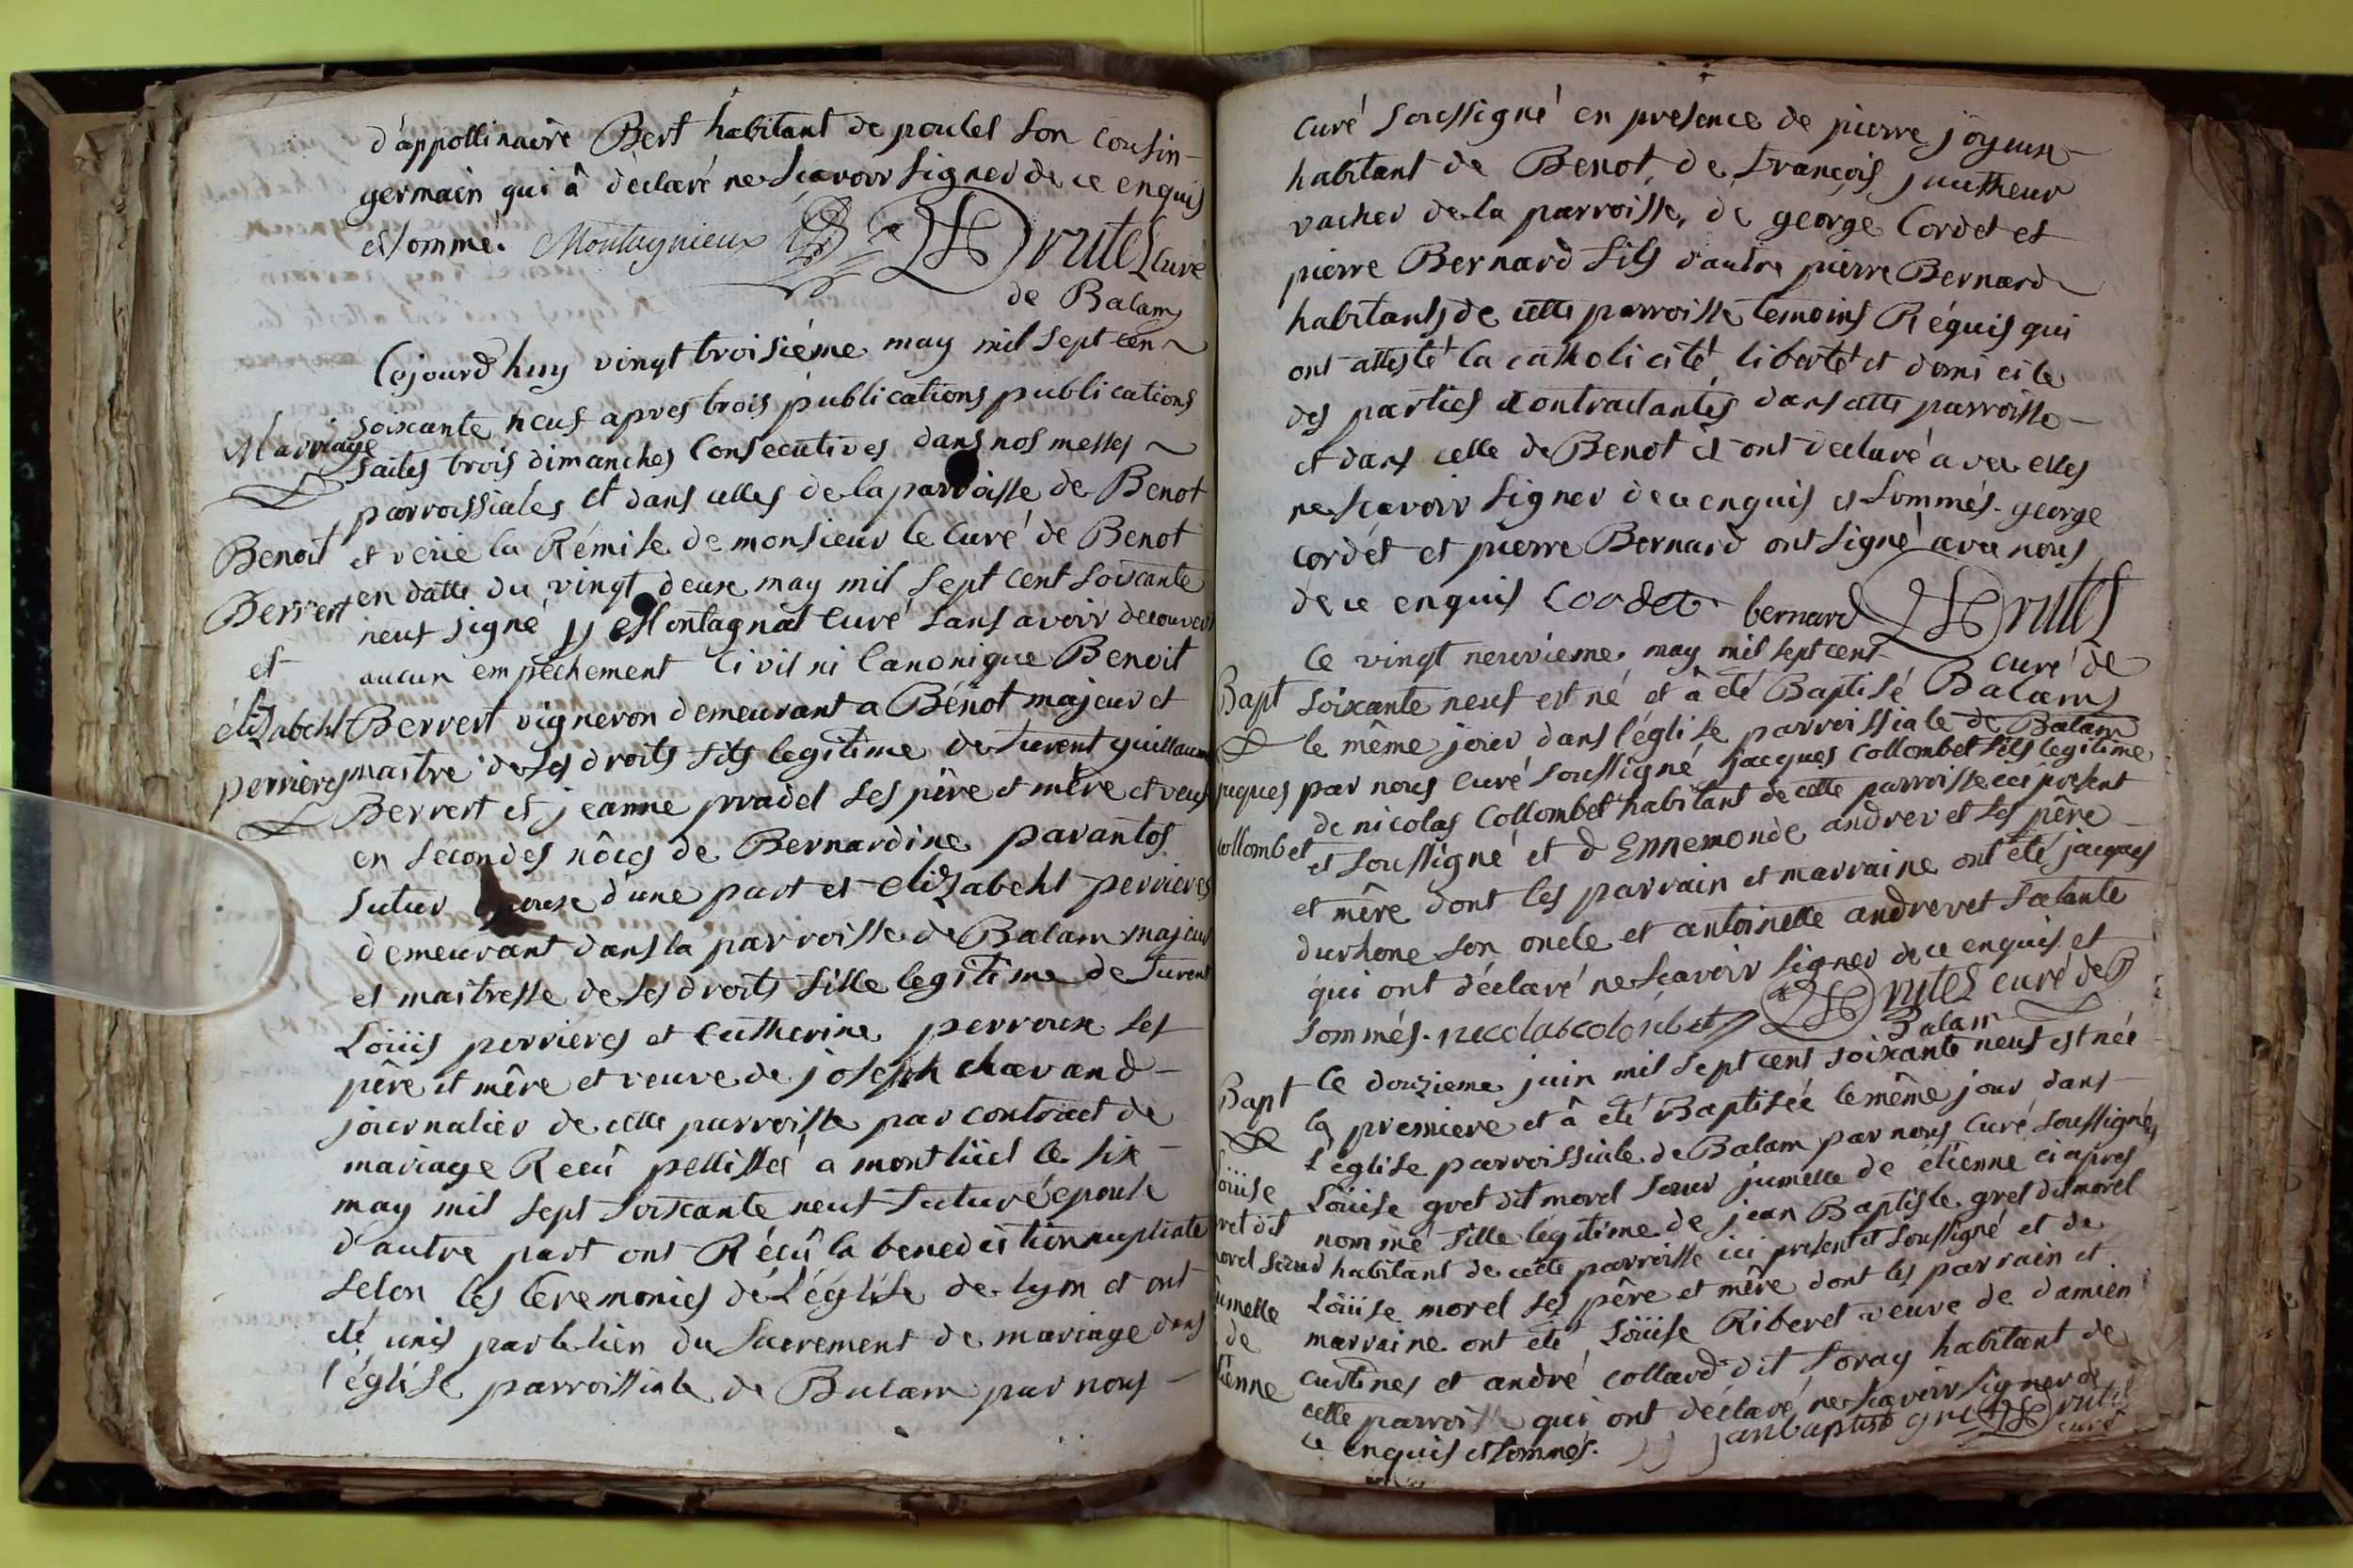 d'appollinaire Bert habitant de poulet son cousin
germain qui â déclaré ne scavoir signer de ce enquis
et sommé. Montagnieux Drutel curé
de Balam
Cejourd'huy vingt troisiéme may mil sept cen
soixante neuf apres trois publications publications
Mariage
faites trois dimanches Consecutives dans nos messes
parroissiales et dans celles de la parroisse de Benot
Benoit
et veüe la Rémise de monsieur le Curé de Benot
en datte du vingt deux may mil sept cent soixante
Berrert
neuf signé Montagnat Curé sans avoir decouvert
et
aucun empêchement Civil ni Canonique Benoit
élizabeht
Berrert vigneron demeurant a Bénot majeur et
perrieres
maitre de ses droits fils legitime de furent guillaume
Berrert et jeanne pradel ses pére et mére et veuf
en secondes nôces de Bernardine parantos
futur epoux d'une part et elizabeht perrieres
demeurant dans la parroisse de Balam majeur
et maitresse de ses droits fille legitime de furent
Loüis perrieres et Catherine perroux ses
pére et mére et veuve de joseph chavand
journalier de cette parroisse par contract de
mariage Recû pellissé a montlüel le six
may mil sept soixante neuf futuré epouse
d'autre part ont Réçû la benediction nuptiale
selon les Ceremonies dé L'églíse de lyon et ont
eté unis par le lien du sacrement de mariage dans
l'églíse parroissiale de Balam par nous
curé soussigné en presence de pierre joyeux
habitant de Benot, de françois
vacher de la parroisse, de george Cordet et
pierre Bernard fils d'autre pierre Bernard
habitants de cette parroisse temoins Réquis qui
ont attesté la catholicité, liberté et domicile
des parties contractantes dans cette parroisse
et dans celle de Benot et ont déclaré avec elles
ne scavoir signer de ce enquis et sommés. george
cordét et pierre Bernard ont signé avec nous
de ce enquis Cordet bernard Drutel
curé de
Balam
Ce vingt neuvieme may mil sept cent
Bapt
soixante neuf est né et â eté Baptisé
le même jour dans l'églíse parroissiale de Balam
jaques
par nous curé soussigné jacques Collombet fils legitime
de nicolas Collombet habitant de cette parroisse ici present
collombet
et soussigné et d'Ennemonde andrevet ses pére
et mêre dont les parrain et marraine ont été jacques
durhone son oncle et antoinette andrevet sa tante
qui ont déclaré ne scavoir signer de ce enquis et
sommés. necolas colonbet Drutel curé de B
Balam
Ce douzieme juin mil sept cent soixante neuf est née
Bapt
la premiere et â eté Baptisée le même jour dans
L'églíse parroissiale de Balam par nous Curé soussigné
Loüise
Loüise gret dit morel soeur jumelle de étienne ci apres
ret dit
nommé fille légitime de jean Baptiste gret dit morel
morel soeur
habitant de cette parroisse ici present et soussigné et de
jumelle
Loüise morel ses pére et mére dont les parrain et
de
marraine ont été Loüise Riberet veuve de damien
tienne
curtines et andré collard dit Loray habitant de
cette parroisse qui ont déclaré ne scavoir signer de
ce enquis et sommés. janbaptiste gret Drutel
curé